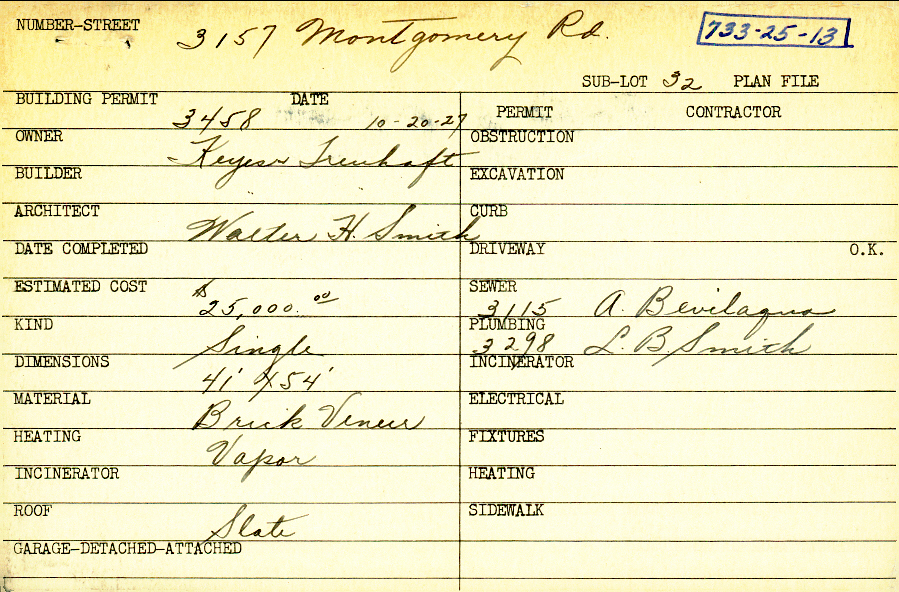 NUMBER-STREET 3157 Montgomery Rd. 733-25-13
SUB-LOT 32 PLAN FILE
BUILDING PERMIT 3458 DATE 10-20-27
PERMIT CONTRACTOR
OWNER Keyes Treuhaft
OBSTRUCTION
BUILDER
EXCAVATION
ARCHITECT Walter H. Smith
CURB
DATE COMPLETED
DRIVEWAY O.K.
ESTIMATED COST $25,000.00
SEWER 3115 A. Bevilaqua
KIND Single
PLUMBING 3298 L. B Smith
DIMENSIONS 41' X 54'
INCINERATOR
MATERIAL Brick Veneer
ELECTRICAL
HEATING Vapor
FIXTURES
INCINERATOR
HEATING
ROOF Slate
SIDEWALK
GARAGE-DETACHED-ATTACHED